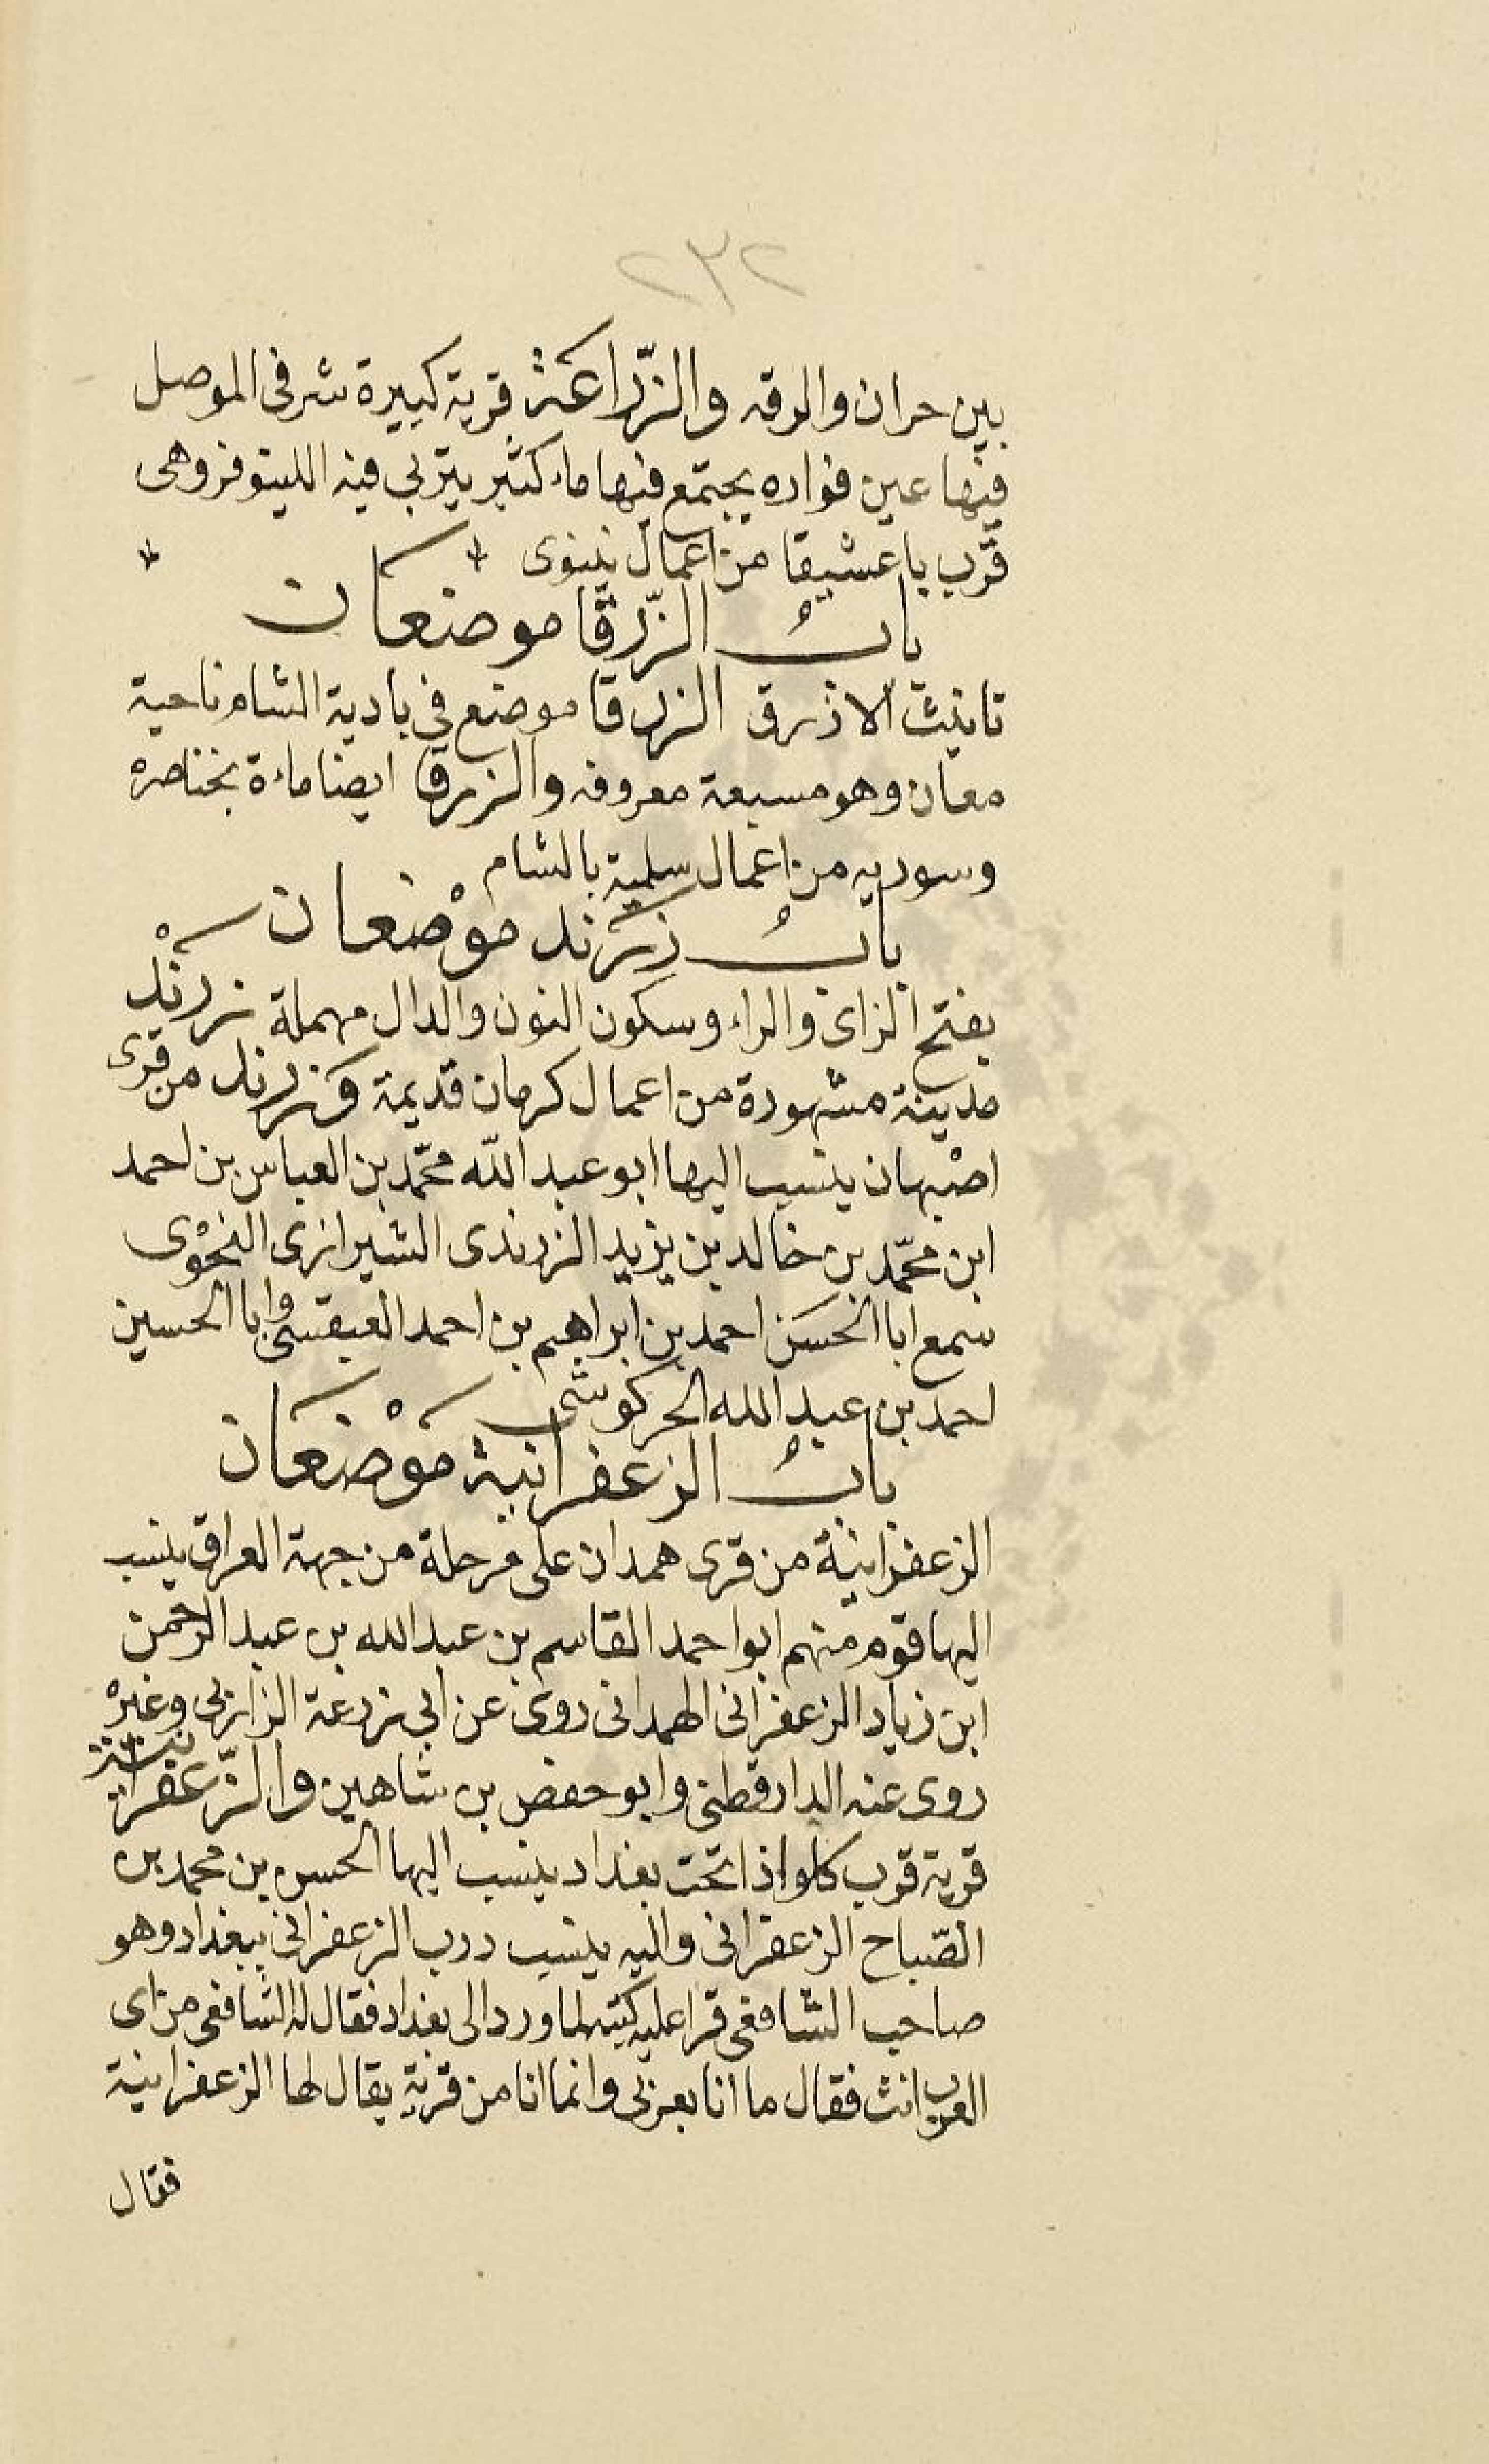 ٢٣٢
بين حران والرقه والزّراعة قرية كبيرة شرقى الموصل
فيها عين فواره يجتمع فيها ماء كثير يتربى فيه اللينوفر وهى
قرب باعشيقا من اعمال نينوى
بابُ الزّرقا موضعان
تانيث الازرق الزرقا موضع في بادية الشام ناحية
معان وهو مسبعة معروفه والزرقا ايضا ماءة بخناصره
وسوريه من اعمال سلمية بالشام
بابُ زَرَند موْضعان
بفتح الزاى والراء وسكون النون والدال مهملة زرنْد
مدينة مشهورة من اعمال كرمان قديمة وزرند من قرى
اصْبهان ينسب اليها ابو عبد الله محمّد بن العباس بن احمد
ابن محمّد بن خالد بن يزيد الزرندى الشيرازى النحْوى
سمع ابا الحسَن احمد بن ابراهيم بن احمد العبقسى وابا الحسين
احمد بن عبد الله الخركوشى
بابُ الزعفرانية موْضعَان
الزعفرانية من قرى همدان على مرحلة من جهة العراق ينسب
اليها قوم منهم ابو احمد القاسم بن عبد الله بن عبد الرحمن
ابن زياد الزعفرانى الهمدانى روى عن ابي زرعة الرازى وغيره
روى عنه الدارقطنى وابو حفص بن شاهين والزّعفرانية
قرية قرب كلواذا تحت بغداد ينسب اليها الحسن بن محمد بن
الصّباح الزعفرانى واليه ينسب درب الزعفرانى ببغداد وهو
صاحب الشافعى قرا عليه كتبه لما ورد الى بغداد فقال له الشافعى من اى
العرب انت فقال ما انا بعربى وانما انا من قرية يقال لها الزعفرانية
فقال